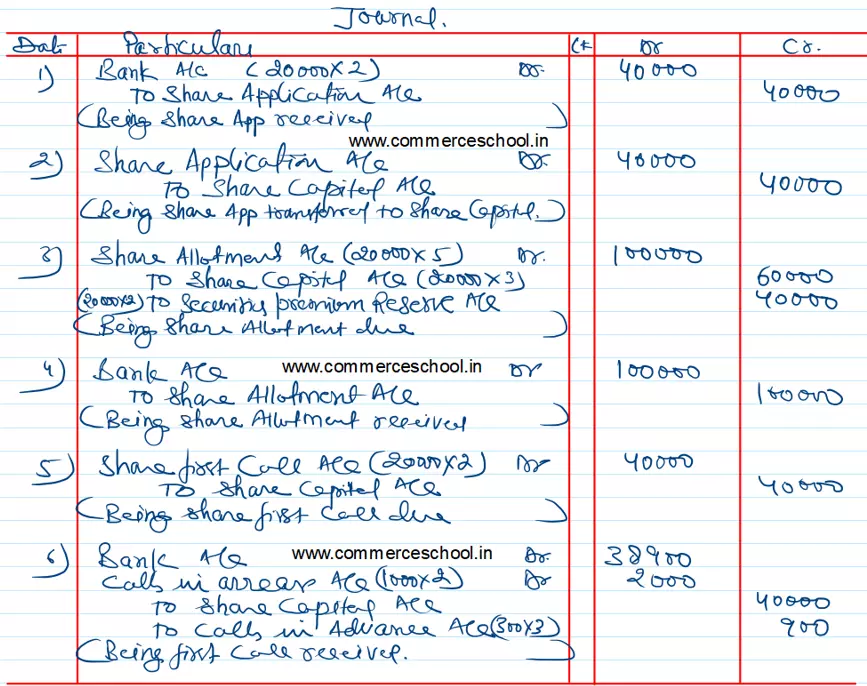 Journal.
Date Particulars LF Dr Cr.
1) Bank A/c (20000×2) Dr. 40000
To Share Application A/c 40000
(Being Share App received)
www.commerceschool.in
2) Share Application A/c Dr. 40000
To Share Capital A/c 40000
(Being Share App transferred to Share Capital.)
3) Share Allotment A/c (20000×5) Dr. 100000
To Share Capital A/c (20000×3) 60000
(20000×2) To Securities premium Reserve A/c 40000
(Being Share Allotment due)
4) Bank A/c www.commerceschool.in Dr 100000
To Share Allotment A/c 100000
(Being Share Allotment received)
5) Share first Call A/c (20000×2) Dr 40000
To Share Capital A/c 40000
(Being Share first Call due)
6) Bank A/c www.commerceschool.in Dr. 38900
Calls in arrear A/c (1000×2) Dr 2000
To Share Capital A/c 40000
To Calls in Advance A/c (300×3) 900
(Being first Call received.)